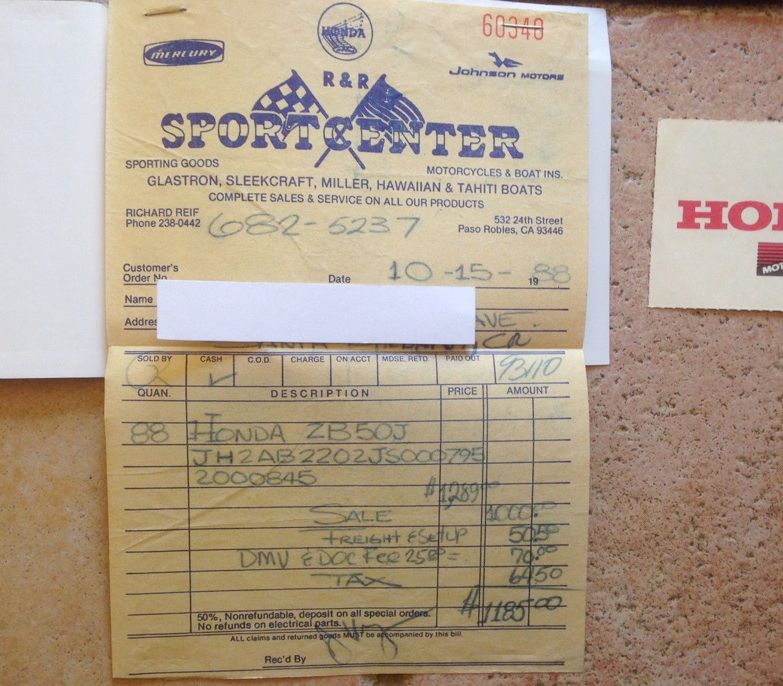 60340
MERCURY
HONDA
Johnson MOTORS
R & R
SPORTCENTER
SPORTING GOODS
MOTORCYCLES & BOAT INS.
GLASTRON, SLEEKCRAFT, MILLER, HAWAIIAN & TAHITI BOATS
COMPLETE SALES & SERVICE ON ALL OUR PRODUCTS
RICHARD REIF
Phone 238-0442
682-5237
532 24th Street
Paso Robles, CA 93446
Customer's
Order No.
Date 10-15- 1988
Name
Addres AVE.
CA
SOLD BY CASH C.O.D. CHARGE ON ACCT MDSE. RETD. PAID OUT 93110
QUAN. DESCRIPTION PRICE AMOUNT
88 HONDA ZB50J
JH2AB2202JS000795
2000845
$1,289.00
SALE 1000.00
FREIGHT & SETUP 50.50
DMV & DOC FEE 25.00 = 70.00
TAX 64.50
$1185.00
50%, Nonrefundable, deposit on all special orders.
No refunds on electrical parts.
ALL claims and returned goods MUST be accompanied by this bill.
Rec'd By
HO
MOT